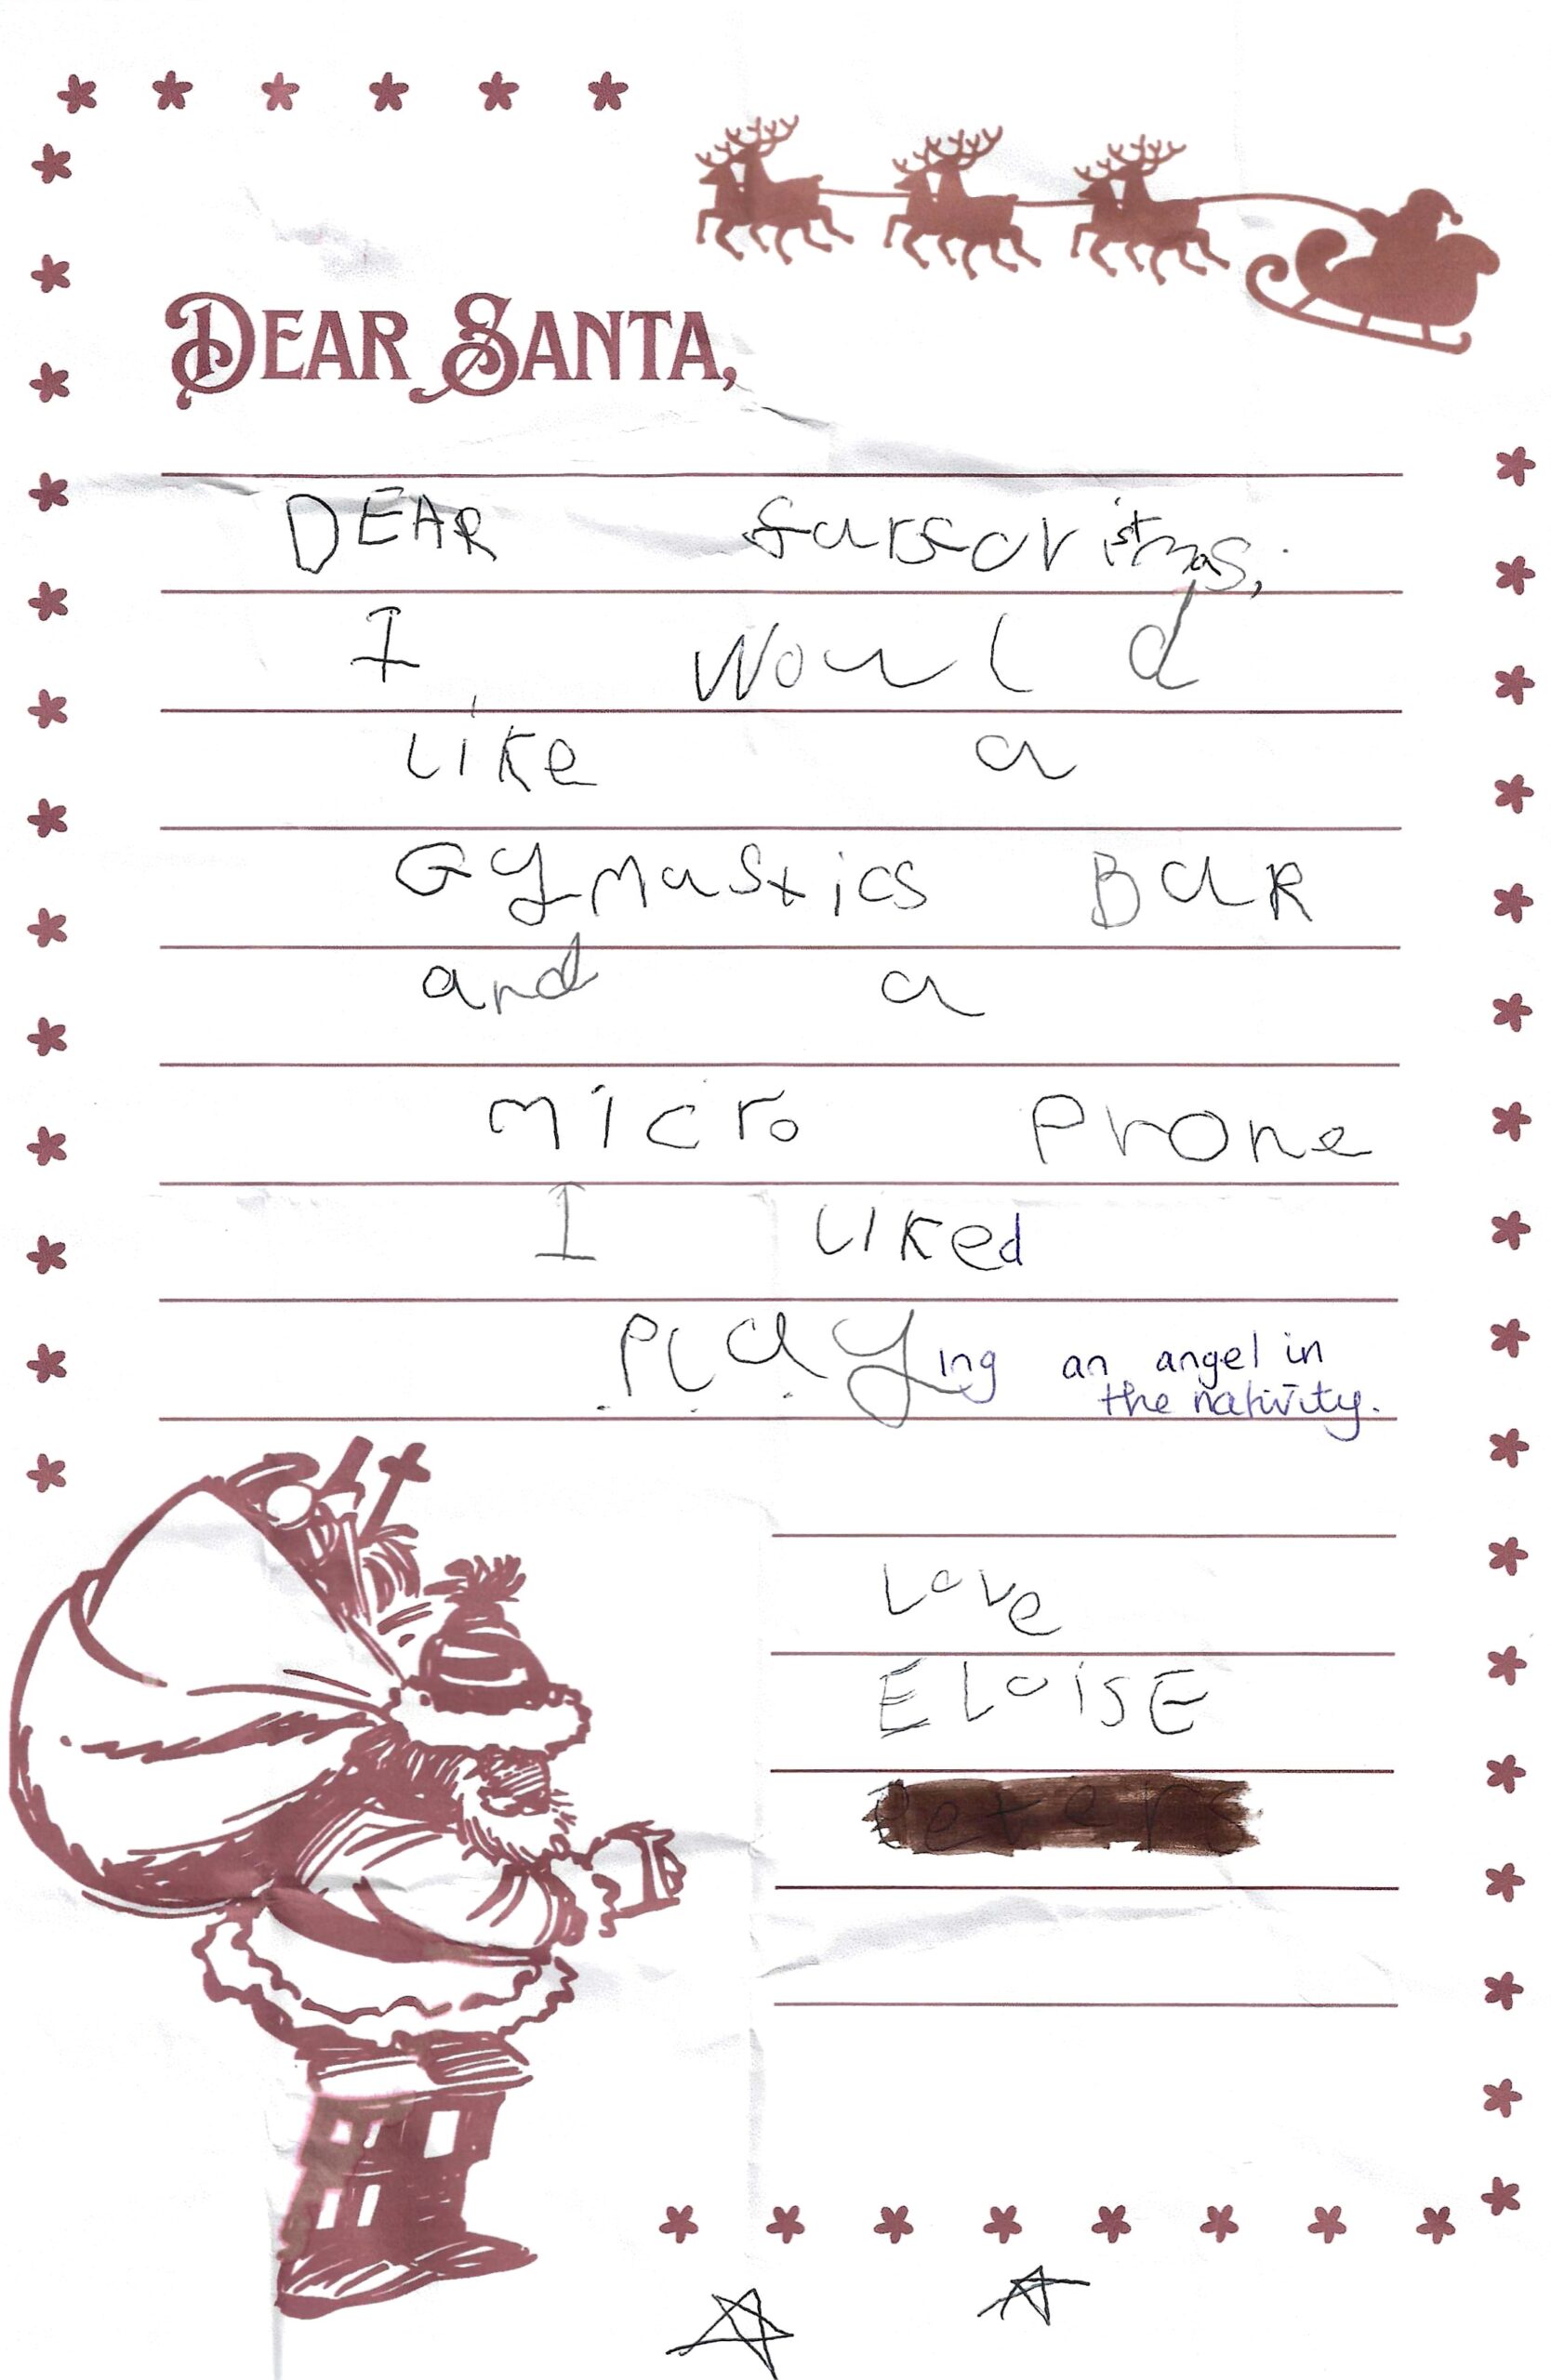 DEAR SANTA,
DEAR
I would
like a
GYmastics BaR
and a
micro Phone
I liked
Playing an angel in
the nativity.
Love
ELOISE